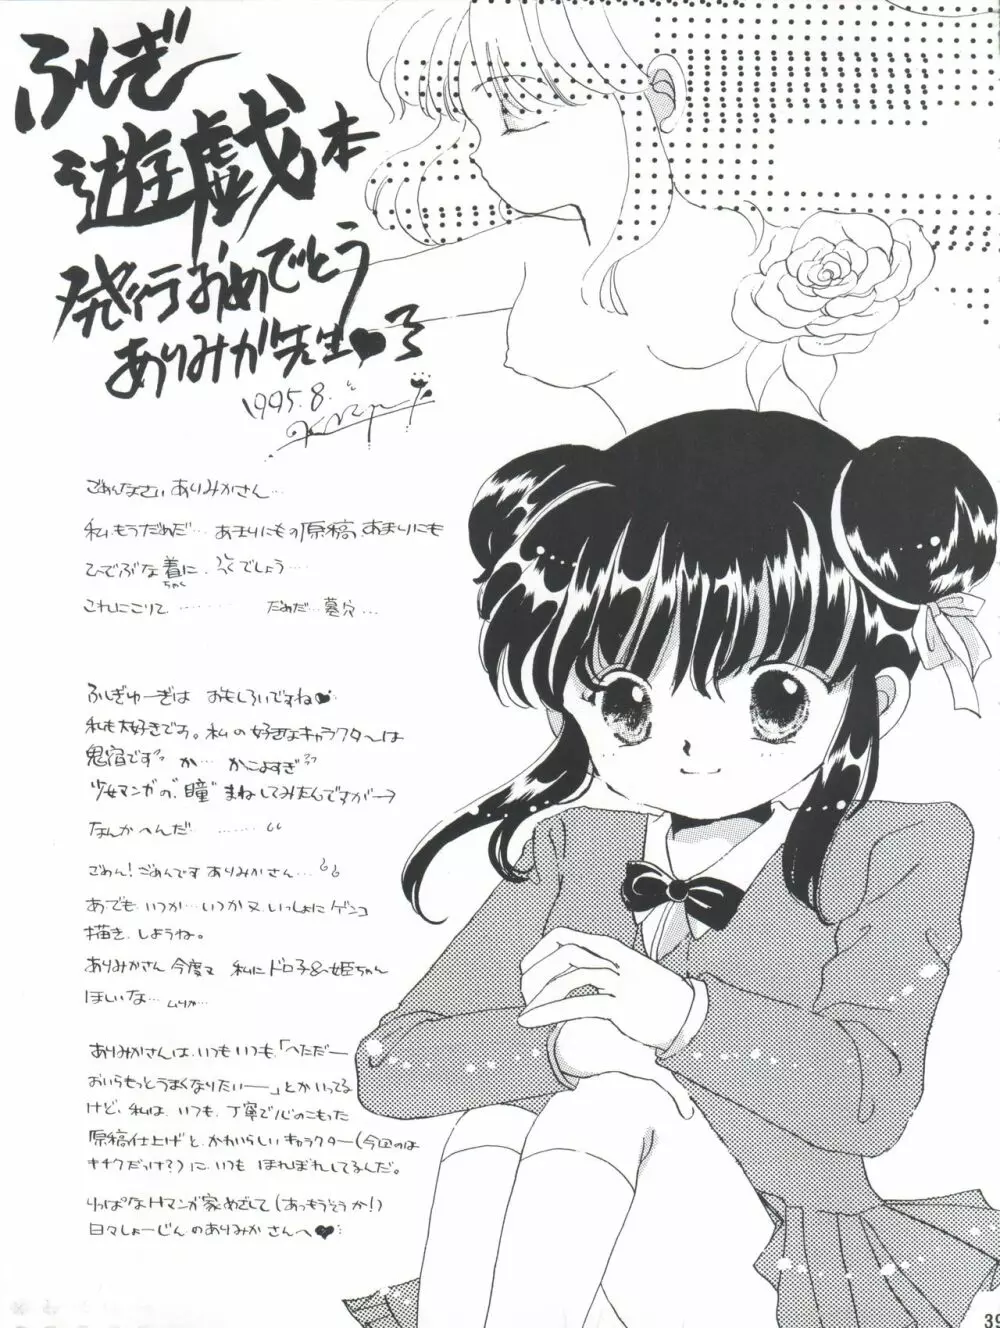 ふしぎ
遊戯本
発行おめでとう
ありみか先生♥
1995.8.
ごめんなさい ありみかさん…
私もうだめだ… あまりにもの原稿、あまりにも
ひでぶな着に、 でしょう…
ちゃく
これにこりて ……… だめだ…墓穴…
ふしぎゆーぎは おもしろいですね♥
私も大好きです。私の好きなキャラクターは
鬼宿です か… かっこよすぎ
少女マンガの"瞳"まねしてみたんですが→
なんかへんだ ………
ごめん!ごめんです ありみかさん…
あでも いつか…いつか又 いっしょに ゲンコ
描き しようね。
ありみかさん 今度又 私に ドロ子&姫ちゃん
ほしいな… ムリか…
ありみかさんは、いつもいつも「へただー
おいらもっとうまくなりたいー」とかいってる
けど、私は、いつも、丁寧で心のこもった
原稿仕上げと、かわいらしいキャラクター(今回のは
キチクだっけ?)に いつも ほれぼれしてるんだ。
りっぱなHマンガ家めざして(あっもうそうか!)
日々しょーじんのありみかさんへ♥
39